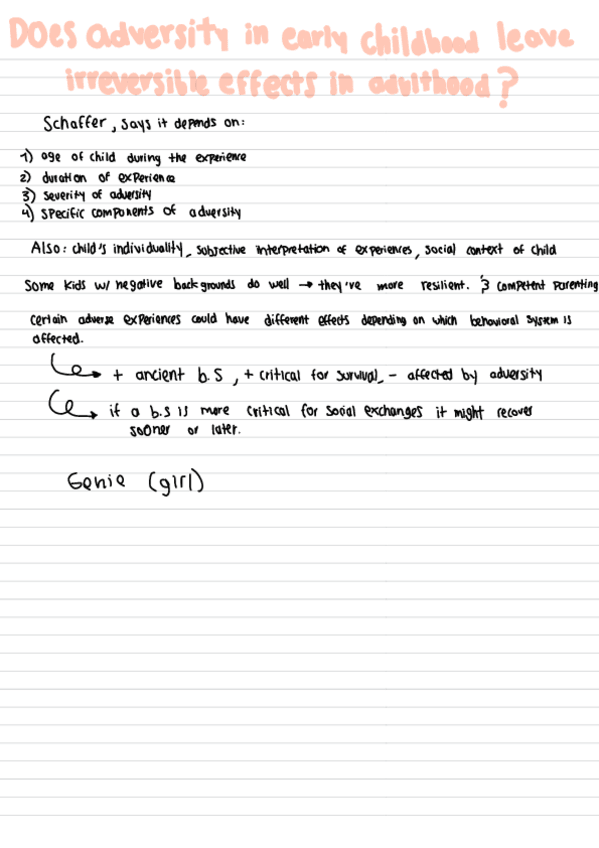 Does adversity in early childhood leave
irreversible effects in adulthood?
Schaffer, says it depends on:
1) age of child during the experience
2) duration of experience
3) severity of adversity
4) specific components of adversity
Also: child's individuality, subjective interpretation of experiences, social context of child
Some kids w/ negative backgrounds do well → they've more resilient. & competent parenting
certain adverse experiences could have different effects depending on which behavioral system is
affected.
+ ancient b.s, + critical for survival, - affected by adversity
if a b.s is more critical for social exchanges it might recover
sooner or later.
Genie (girl)